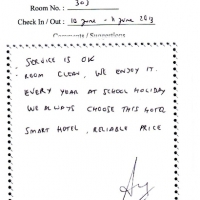 Room No. : 303
Check In / Out : 10 June - 11 June 2013
Comments / Suggestions
- SERVICE IS OK
- ROOM CLEAN, WE ENJOY IT.
EVERY YEAR AT SCHOOL HOLIDAY
WE ALWAYS CHOOSE THIS HOTEL
SMART HOTEL, RELIABLE PRICE